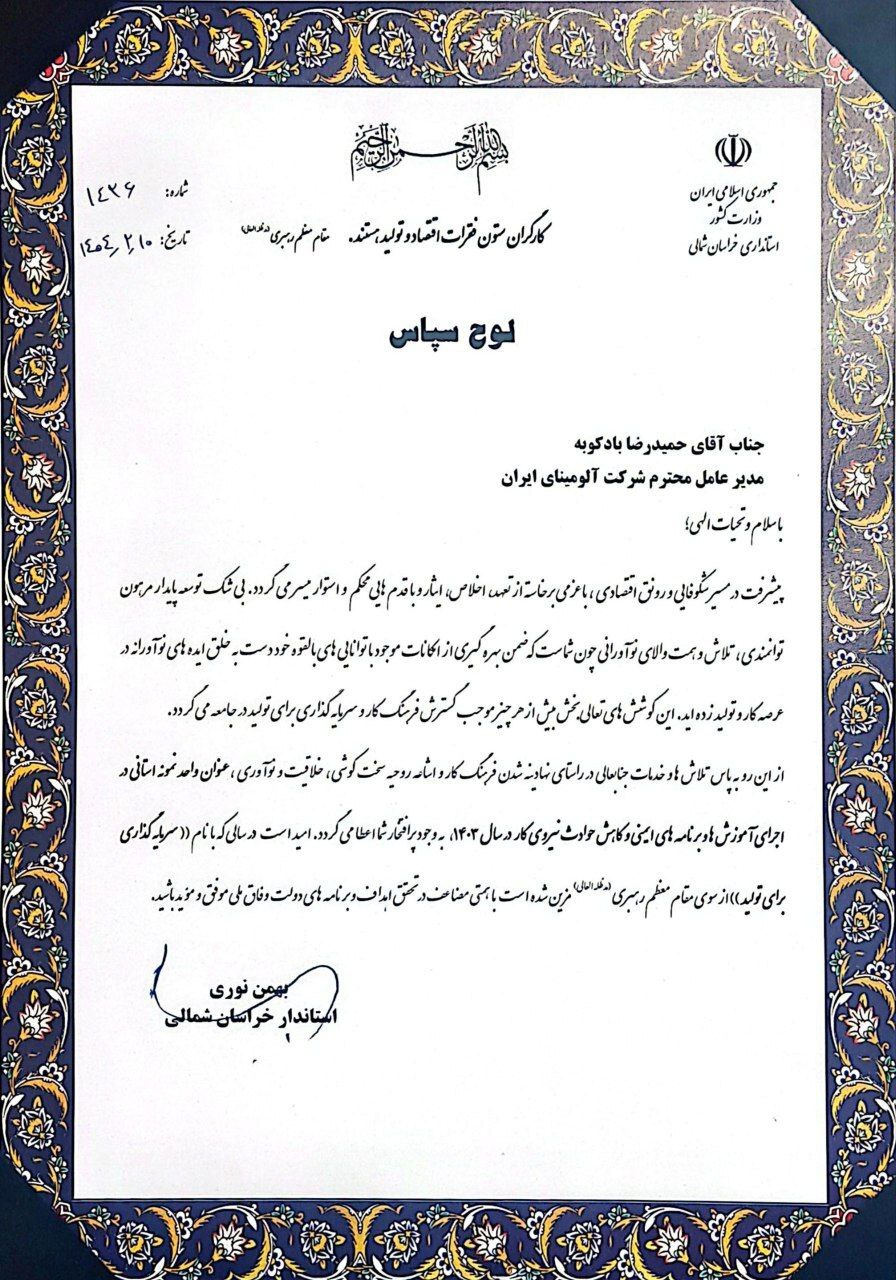 بسم الله الرحمن الرحیم
جمهوری اسلامی ایران
وزارت کشور
استانداری خراسان شمالی
شماره: ۱۴۳۶
تاریخ: ۱۴۰۴/۲/۱۰
کارگران ستون فقرات اقتصاد و تولید هستند. مقام معظم رهبری (مدظله العالی)
لوح سپاس
جناب آقای حمیدرضا بادکوبه
مدیر عامل محترم شرکت آلومینای ایران
با سلام و تحیات الهی؛
پیشرفت در مسیر شکوفایی و رونق اقتصادی، با عزمی برخاسته از تعهد، اخلاص، ایثار و با قدم هایی محکم و استوار میسر می گردد. بی شک توسعه پایدار مرهون
توانمندی، تلاش و همت والای نوآورانی چون شماست که ضمن بهره گیری از امکانات موجود با توانایی های بالقوه خود دست به خلق ایده های نوآورانه در
عرصه کار و تولید زده اید. این کوشش های تعالی بخش بیش از هر چیز موجب گسترش فرهنگ کار و سرمایه گذاری برای تولید در جامعه می گردد.
از این رو به پاس تلاش ها و خدمات جنابعالی در راستای نهادینه شدن فرهنگ کار و اشاعه روحیه سخت کوشی، خلاقیت و نوآوری، عنوان واحد نمونه استانی در
اجرای آموزش ها و برنامه های ایمنی و کاهش حوادث نیروی کار در سال ۱۴۰۳، به وجود پرافتخار شما اعطا می گردد. امید است در سالی که با نام ((سرمایه گذاری
برای تولید)) از سوی مقام معظم رهبری (مدظله العالی) مزین شده است با همتی مضاعف در تحقق اهداف و برنامه های دولت وفاق ملی موفق و مؤید باشید.
بهمن نوری
استاندار خراسان شمالی